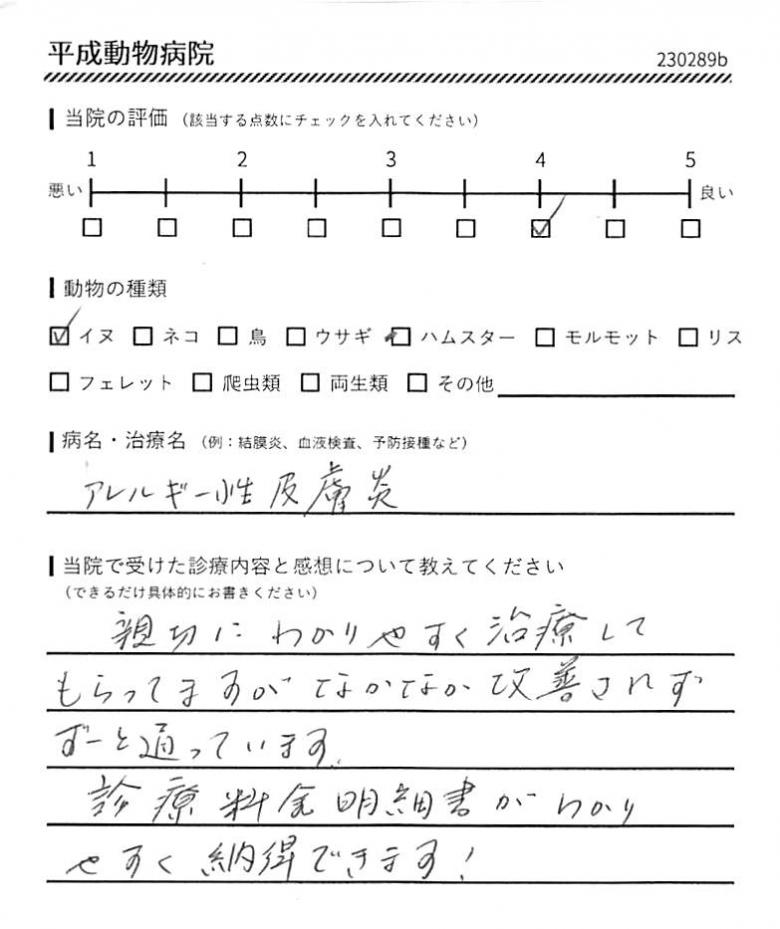 平成動物病院 230289b
当院の評価 (該当する点数にチェックを入れてください)
1 2 3 4 5
悪い 良い
動物の種類
イヌ ネコ 鳥 ウサギ ハムスター モルモット リス
フェレット 爬虫類 両生類 その他
病名・治療名 (例:結膜炎、血液検査、予防接種など)
アレルギー性皮膚炎
当院で受けた診療内容と感想について教えてください
(できるだけ具体的にお書きください)
親切にわかりやすく治療して
もらってますがなかなか改善されず
ずーと通っています。
診療料金明細書がわかり
やすく納得できます!